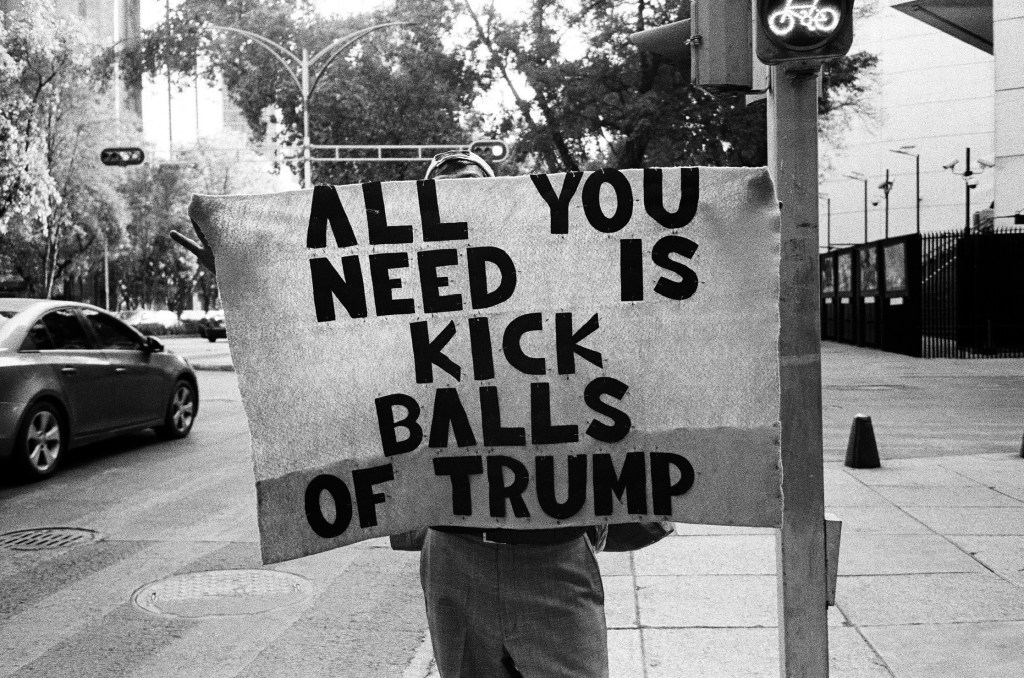 ALL YOU
NEED IS
KICK
BALLS
OF TRUMP